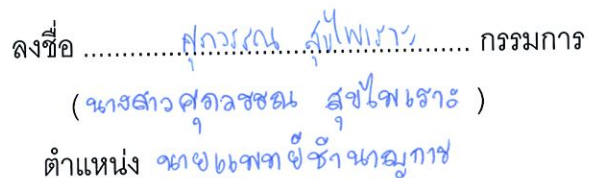 ลงชื่อ ศุภวรรณ สุขไพเราะ กรรมการ
(นางสาวศุภวรรณ สุขไพเราะ)
ตำแหน่ง นายแพทย์ชำนาญการ